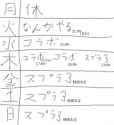 月 休
火 なんかやる
水 コラボ
木 コラボ コラボ スプラ3
金 スプラ3
土 スプラ3
日 スプラ3